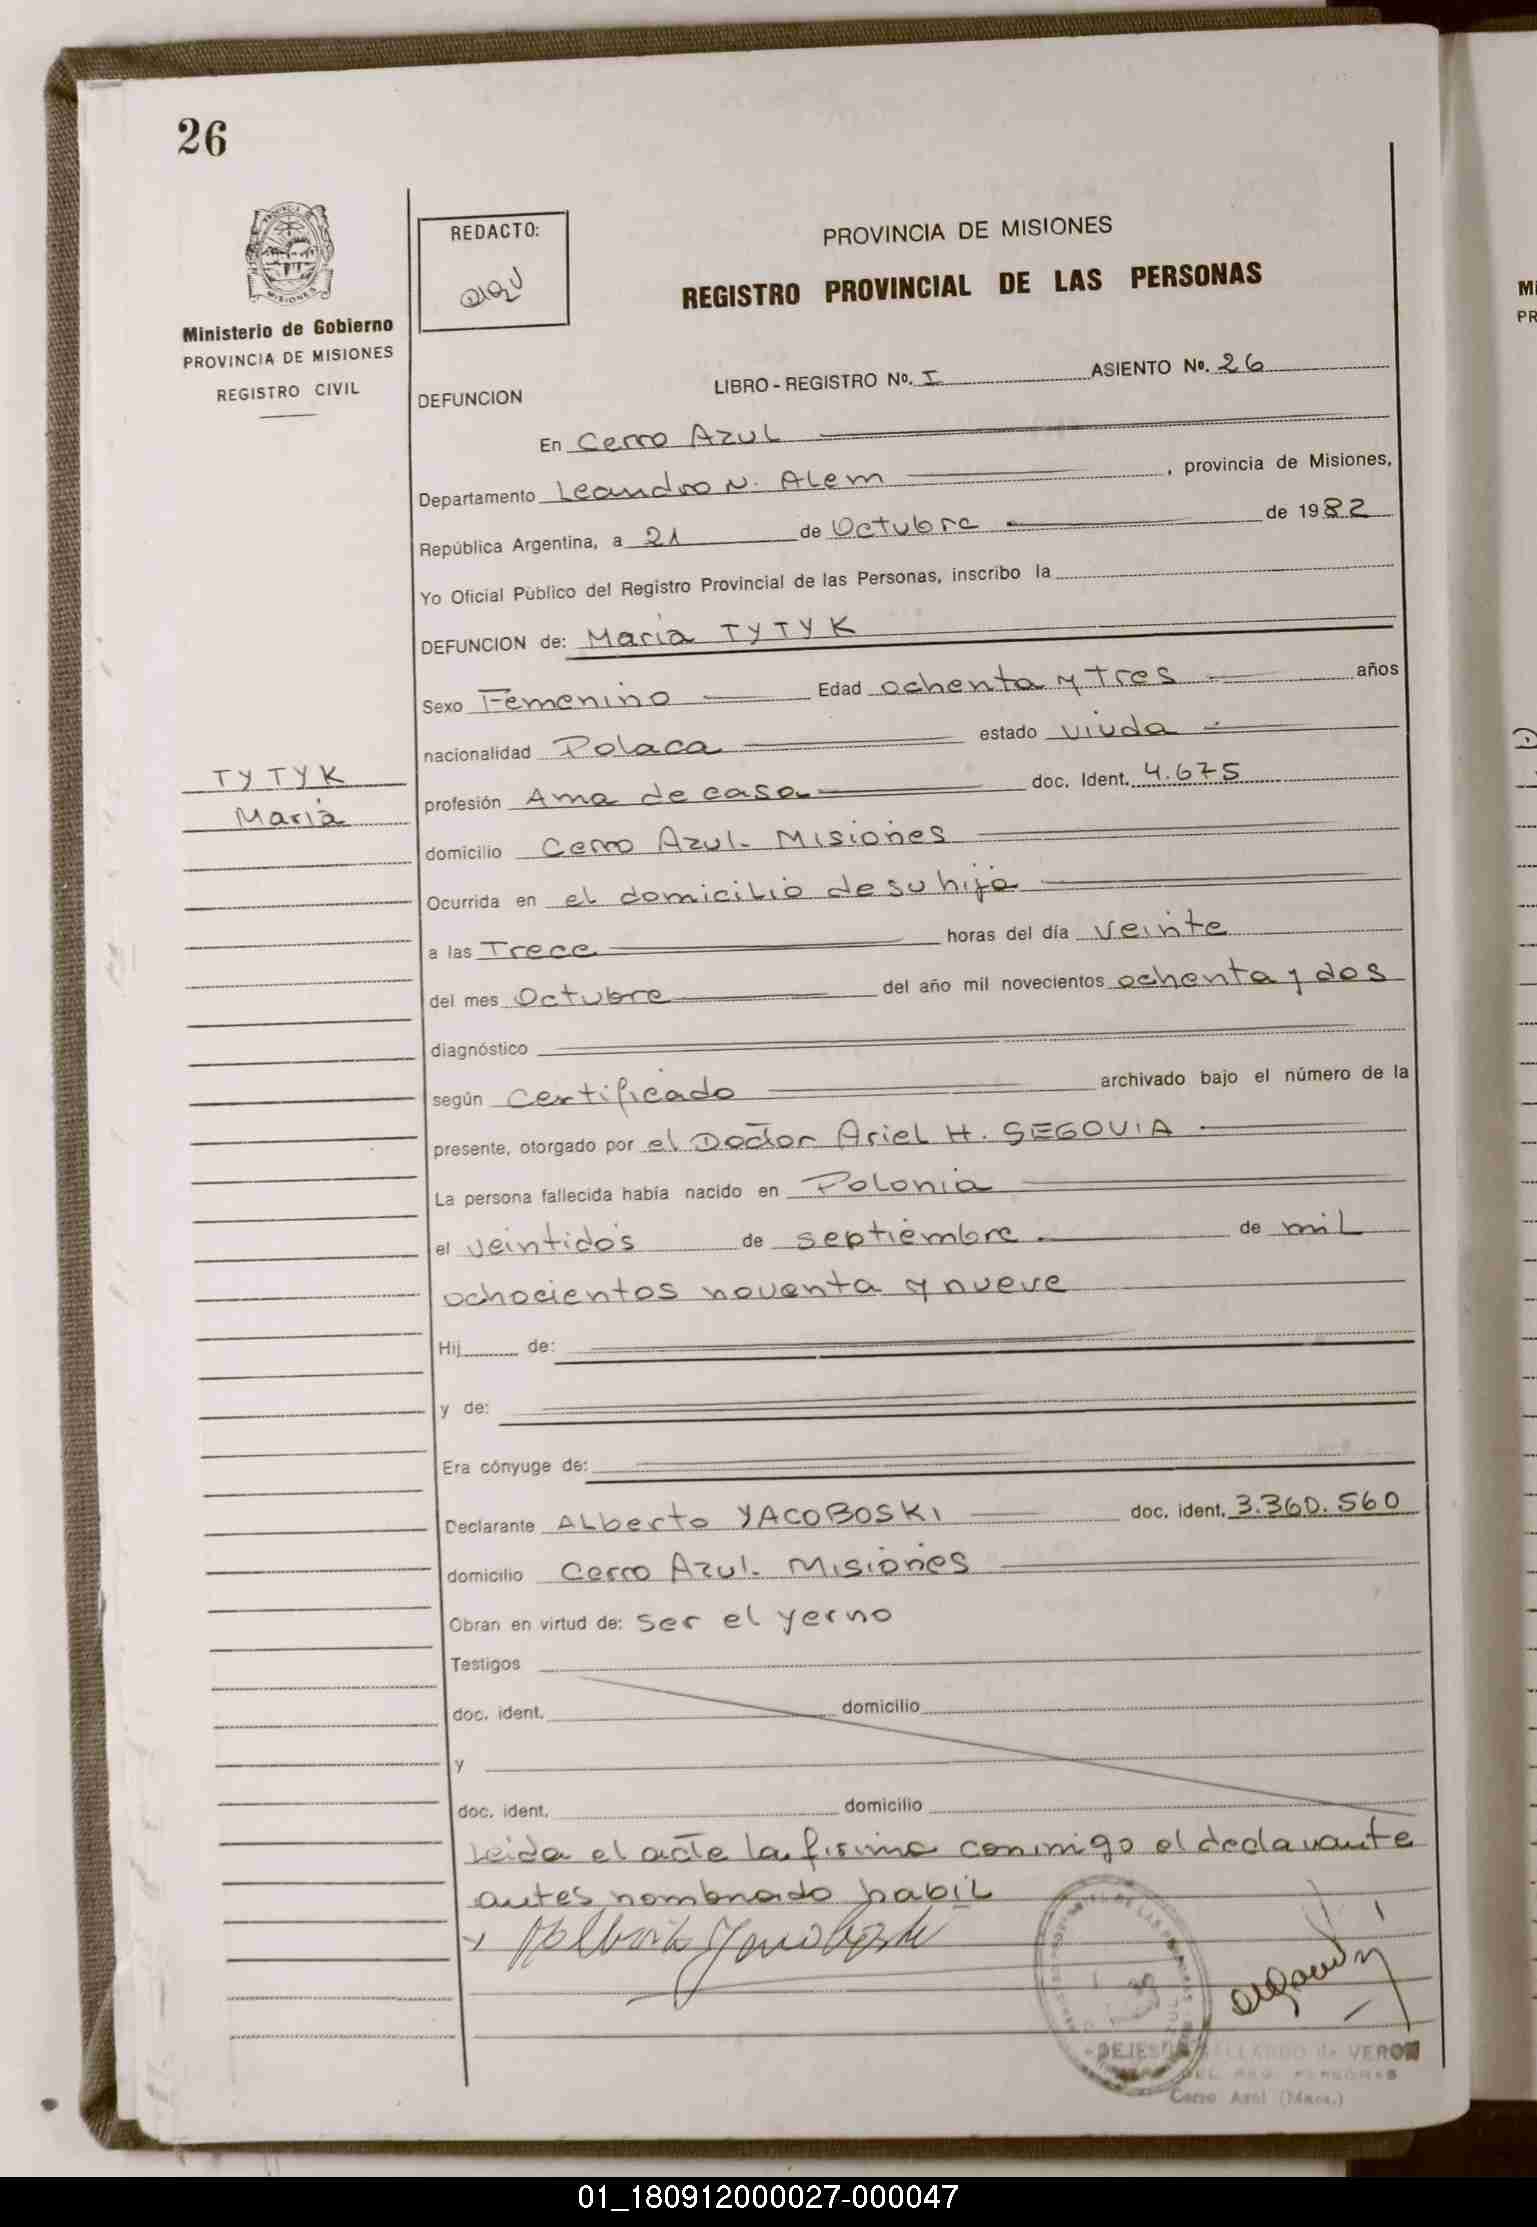 26
PROVINCIA DE
MISIONES
Ministerio de Gobierno
PROVINCIA DE MISIONES
REGISTRO CIVIL
REDACTO:
PROVINCIA DE MISIONES
REGISTRO PROVINCIAL DE LAS PERSONAS
DEFUNCION LIBRO - REGISTRO No. I ASIENTO No. 26
En Cerro Azul
Departamento Leandro N. Alem , provincia de Misiones,
República Argentina, a 21 de Octubre de 1982
Yo Oficial Público del Registro Provincial de las Personas, inscribo la
DEFUNCION de: Maria TYTYK
Sexo Femenino Edad ochenta y Tres años
nacionalidad Polaca estado viuda
TYTYK
Maria
profesión Ama de casa doc. Ident. 4.675
domicilio Cerro Azul. Misiones
Ocurrida en el domicilio de su hija
a las Trece horas del día veinte
del mes Octubre del año mil novecientos ochenta y dos
diagnóstico
según certificado archivado bajo el número de la
presente, otorgado por el Doctor Ariel H. SEGOVIA
La persona fallecida había nacido en Polonia
el veintidos de septiembre de mil
ochocientos noventa y nueve
Hij de:
y de:
Era cónyuge de:
Declarante Alberto YACOBOSKI doc. ident. 3.360.560
domicilio Cerro Azul. Misiones
Obran en virtud de: ser el yerno
Testigos
doc. ident. domicilio
y
doc. ident. domicilio
Leida el acta la firma conmigo el declarante
antes nombrado habil
DEJESUS GALLARDO de VERON
DEL REG. PERSONAS
Cerro Azul (Mnes.)
M
PR
01_180912000027-000047